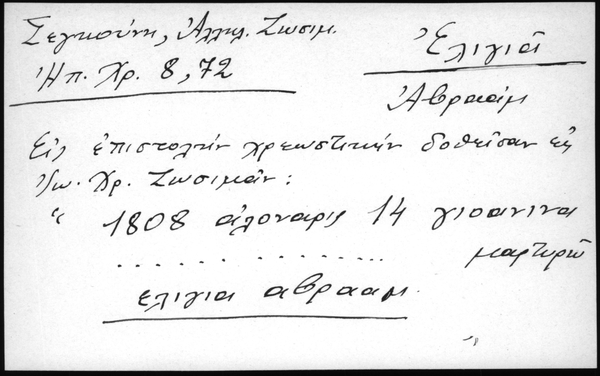 Σεγκούνη, Ἀλληλ. Ζωσιμ.
Ἠπ. Χρ. 8, 72
Ἐλιγιᾶ
Ἀβραάμ
Εἰς ἐπιστολήν χρεωστικήν δοθεῖσαν εἰς
Ἰω. Χρ. Ζωσιμᾶν:
“ 1808 ἀλοναρις 14 γιοανινα
. . . . . . . . . . . . . . μαρτυρῶ
ελιγια αβρααμ.